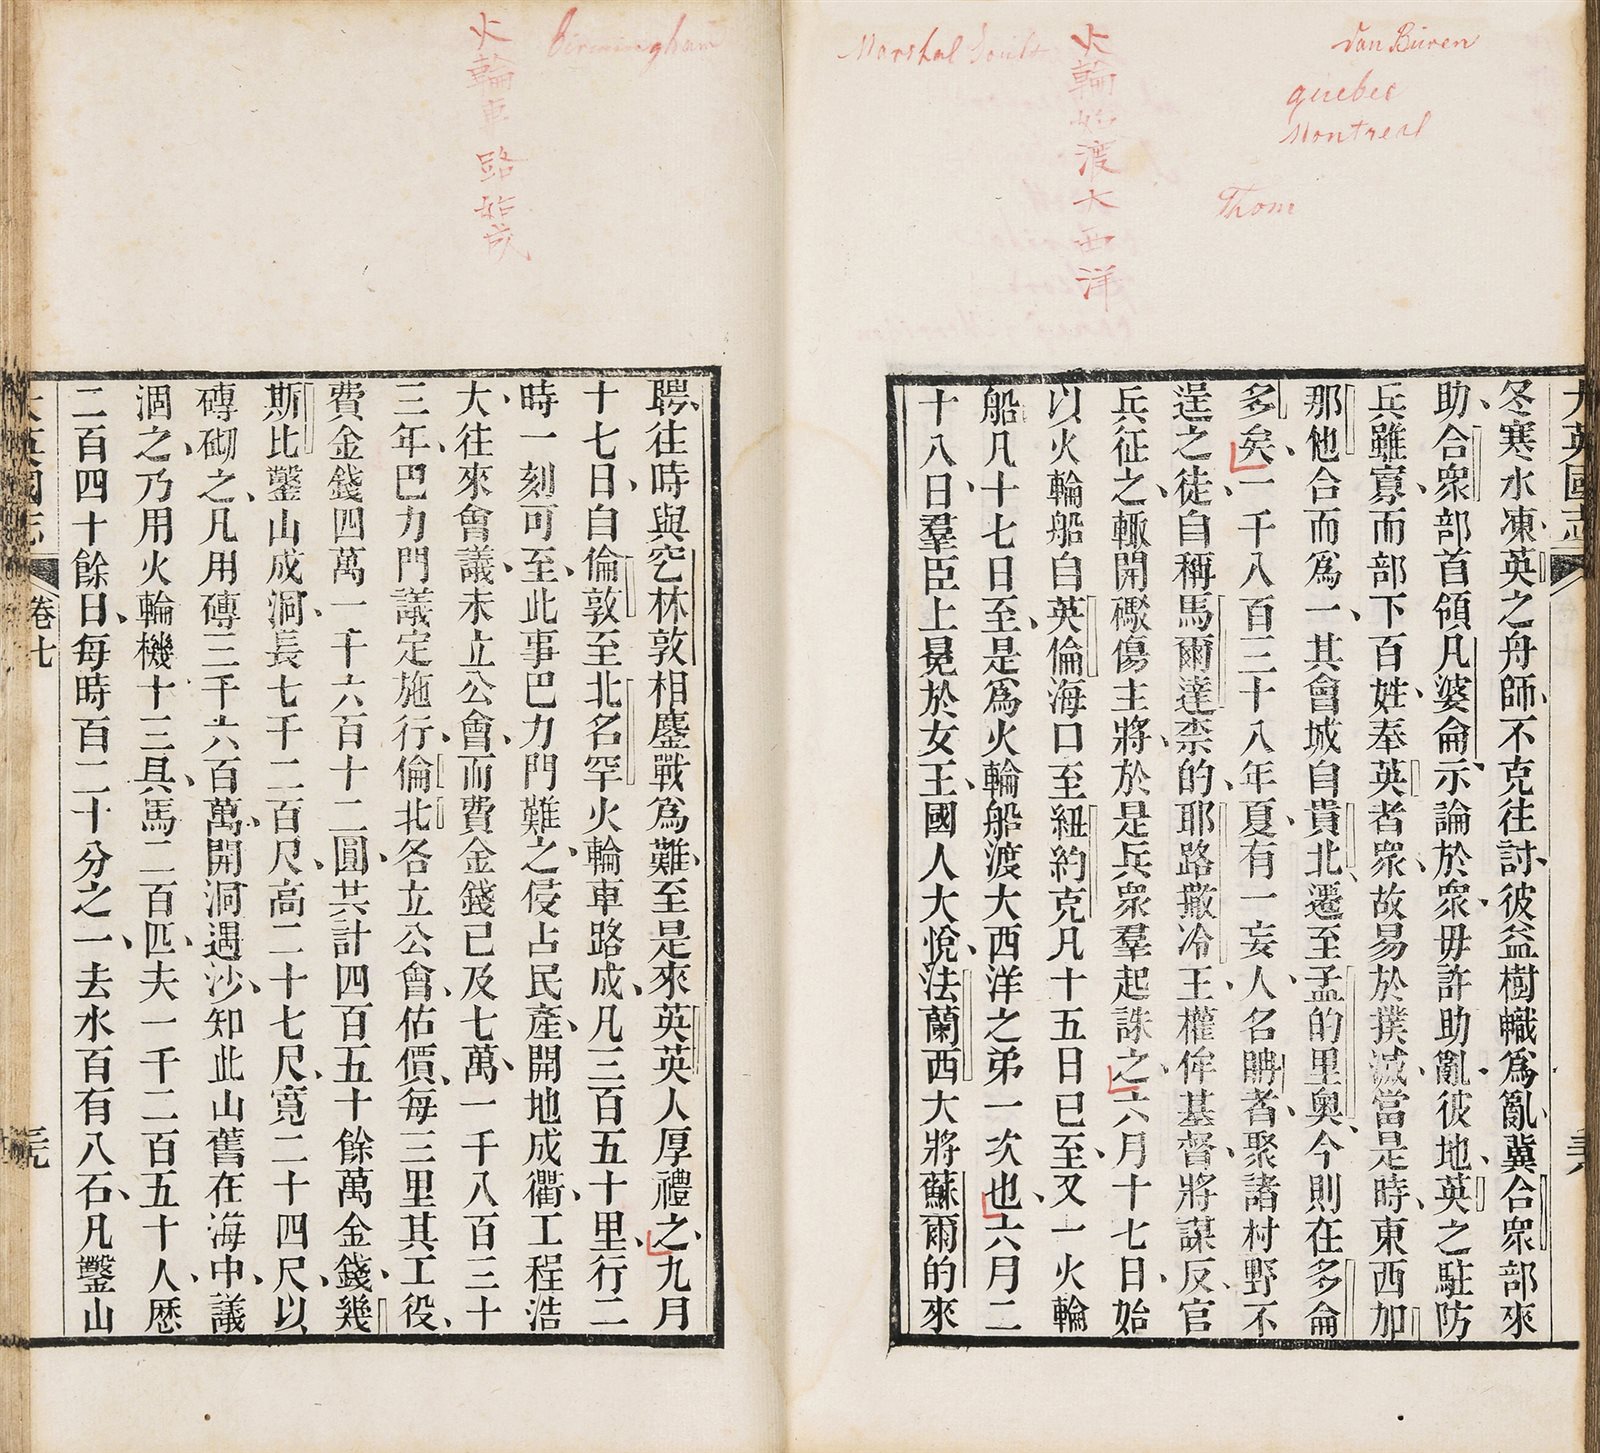 Van Buren
Quebec
Montreal
Thom
火輪始渡大西洋
Marshal Soult
大英國志
卷七
冬寒水凍英之舟師不克往討彼益樹幟爲亂冀合衆部來
助合衆部首領凡婆侖示諭於衆毋許助亂彼地英之駐防
兵雖寡而部下百姓奉英者衆故易於撲滅當是時東西加
那他合而爲一其會城自貴北遷至孟的里奧今則在多侖
多矣一千八百三十八年夏有一妄人名聃者聚諸村野不
逞之徒自稱馬爾達柰的耶路撒冷王權侔基督將謀反官
兵征之輙開礟傷主將於是兵衆羣起誅之六月十七日始
以火輪船自英倫海口至紐約克凡十五日已至又一火輪
船凡十七日至是爲火輪船渡大西洋之弟一次也六月二
十八日羣臣上冕於女王國人大悅法蘭西大將蘇爾的來
火輪車路始成
Birmingham
聘往時與穵林敦相鏖戰爲難至是來英英人厚禮之九月
十七日自倫敦至北名罕火輪車路成凡三百五十里行二
時一刻可至此事巴力門難之侵占民產開地成衢工程浩
大往來會議未立公會而費金錢已及七萬一千八百三十
三年巴力門議定施行倫北各立公會估價每三里其工役
費金錢四萬一千六百十二圓共計四百五十餘萬金錢幾
斯比鑿山成洞長七千二百尺高二十七尺寬二十四尺以
磚砌之凡用磚三千六百萬開洞遇沙知此山舊在海中議
涸之乃用火輪機十三具馬二百匹夫一千二百五十人歷
二百四十餘日每時百二十分之一去水百有八石凡鑿山
大英國志
卷七